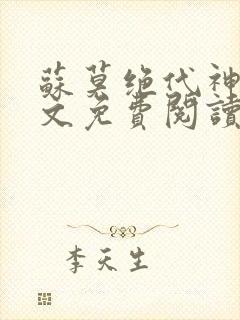 蘇莫绝代神
文免費閱讀
李天生